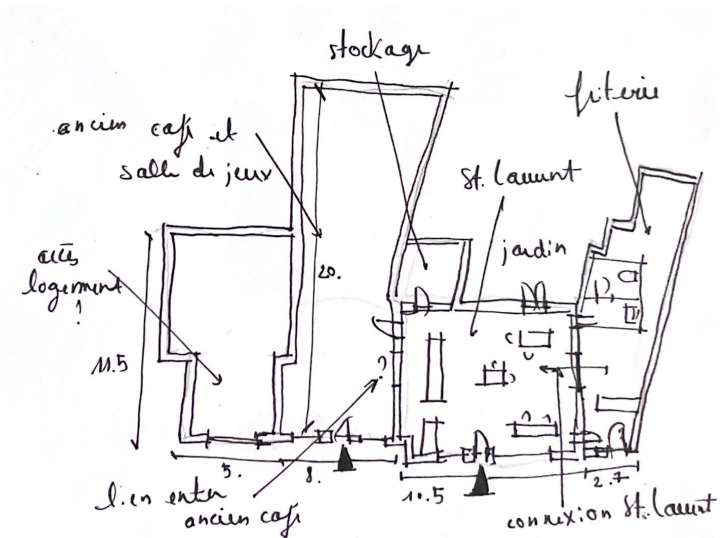 stockage
friterie
ancien café et
salle de jeux
St. Laurent
jardin
accès
logement
?
20.
11.5
?
5.
8.
10.5
2.7
lien entre
ancien café
connexion St. Laurent